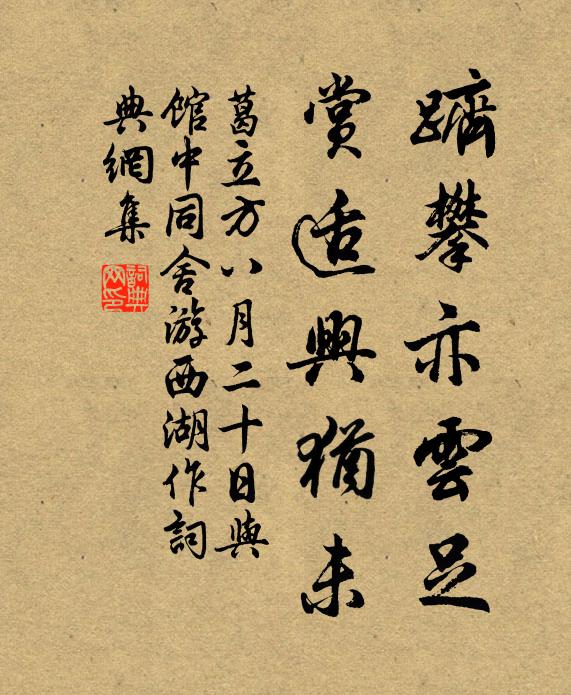 躋攀亦雲足
賞适興猶未
葛立方八月二十日與
館中同舍游西湖作詞
典網集
詞典網印